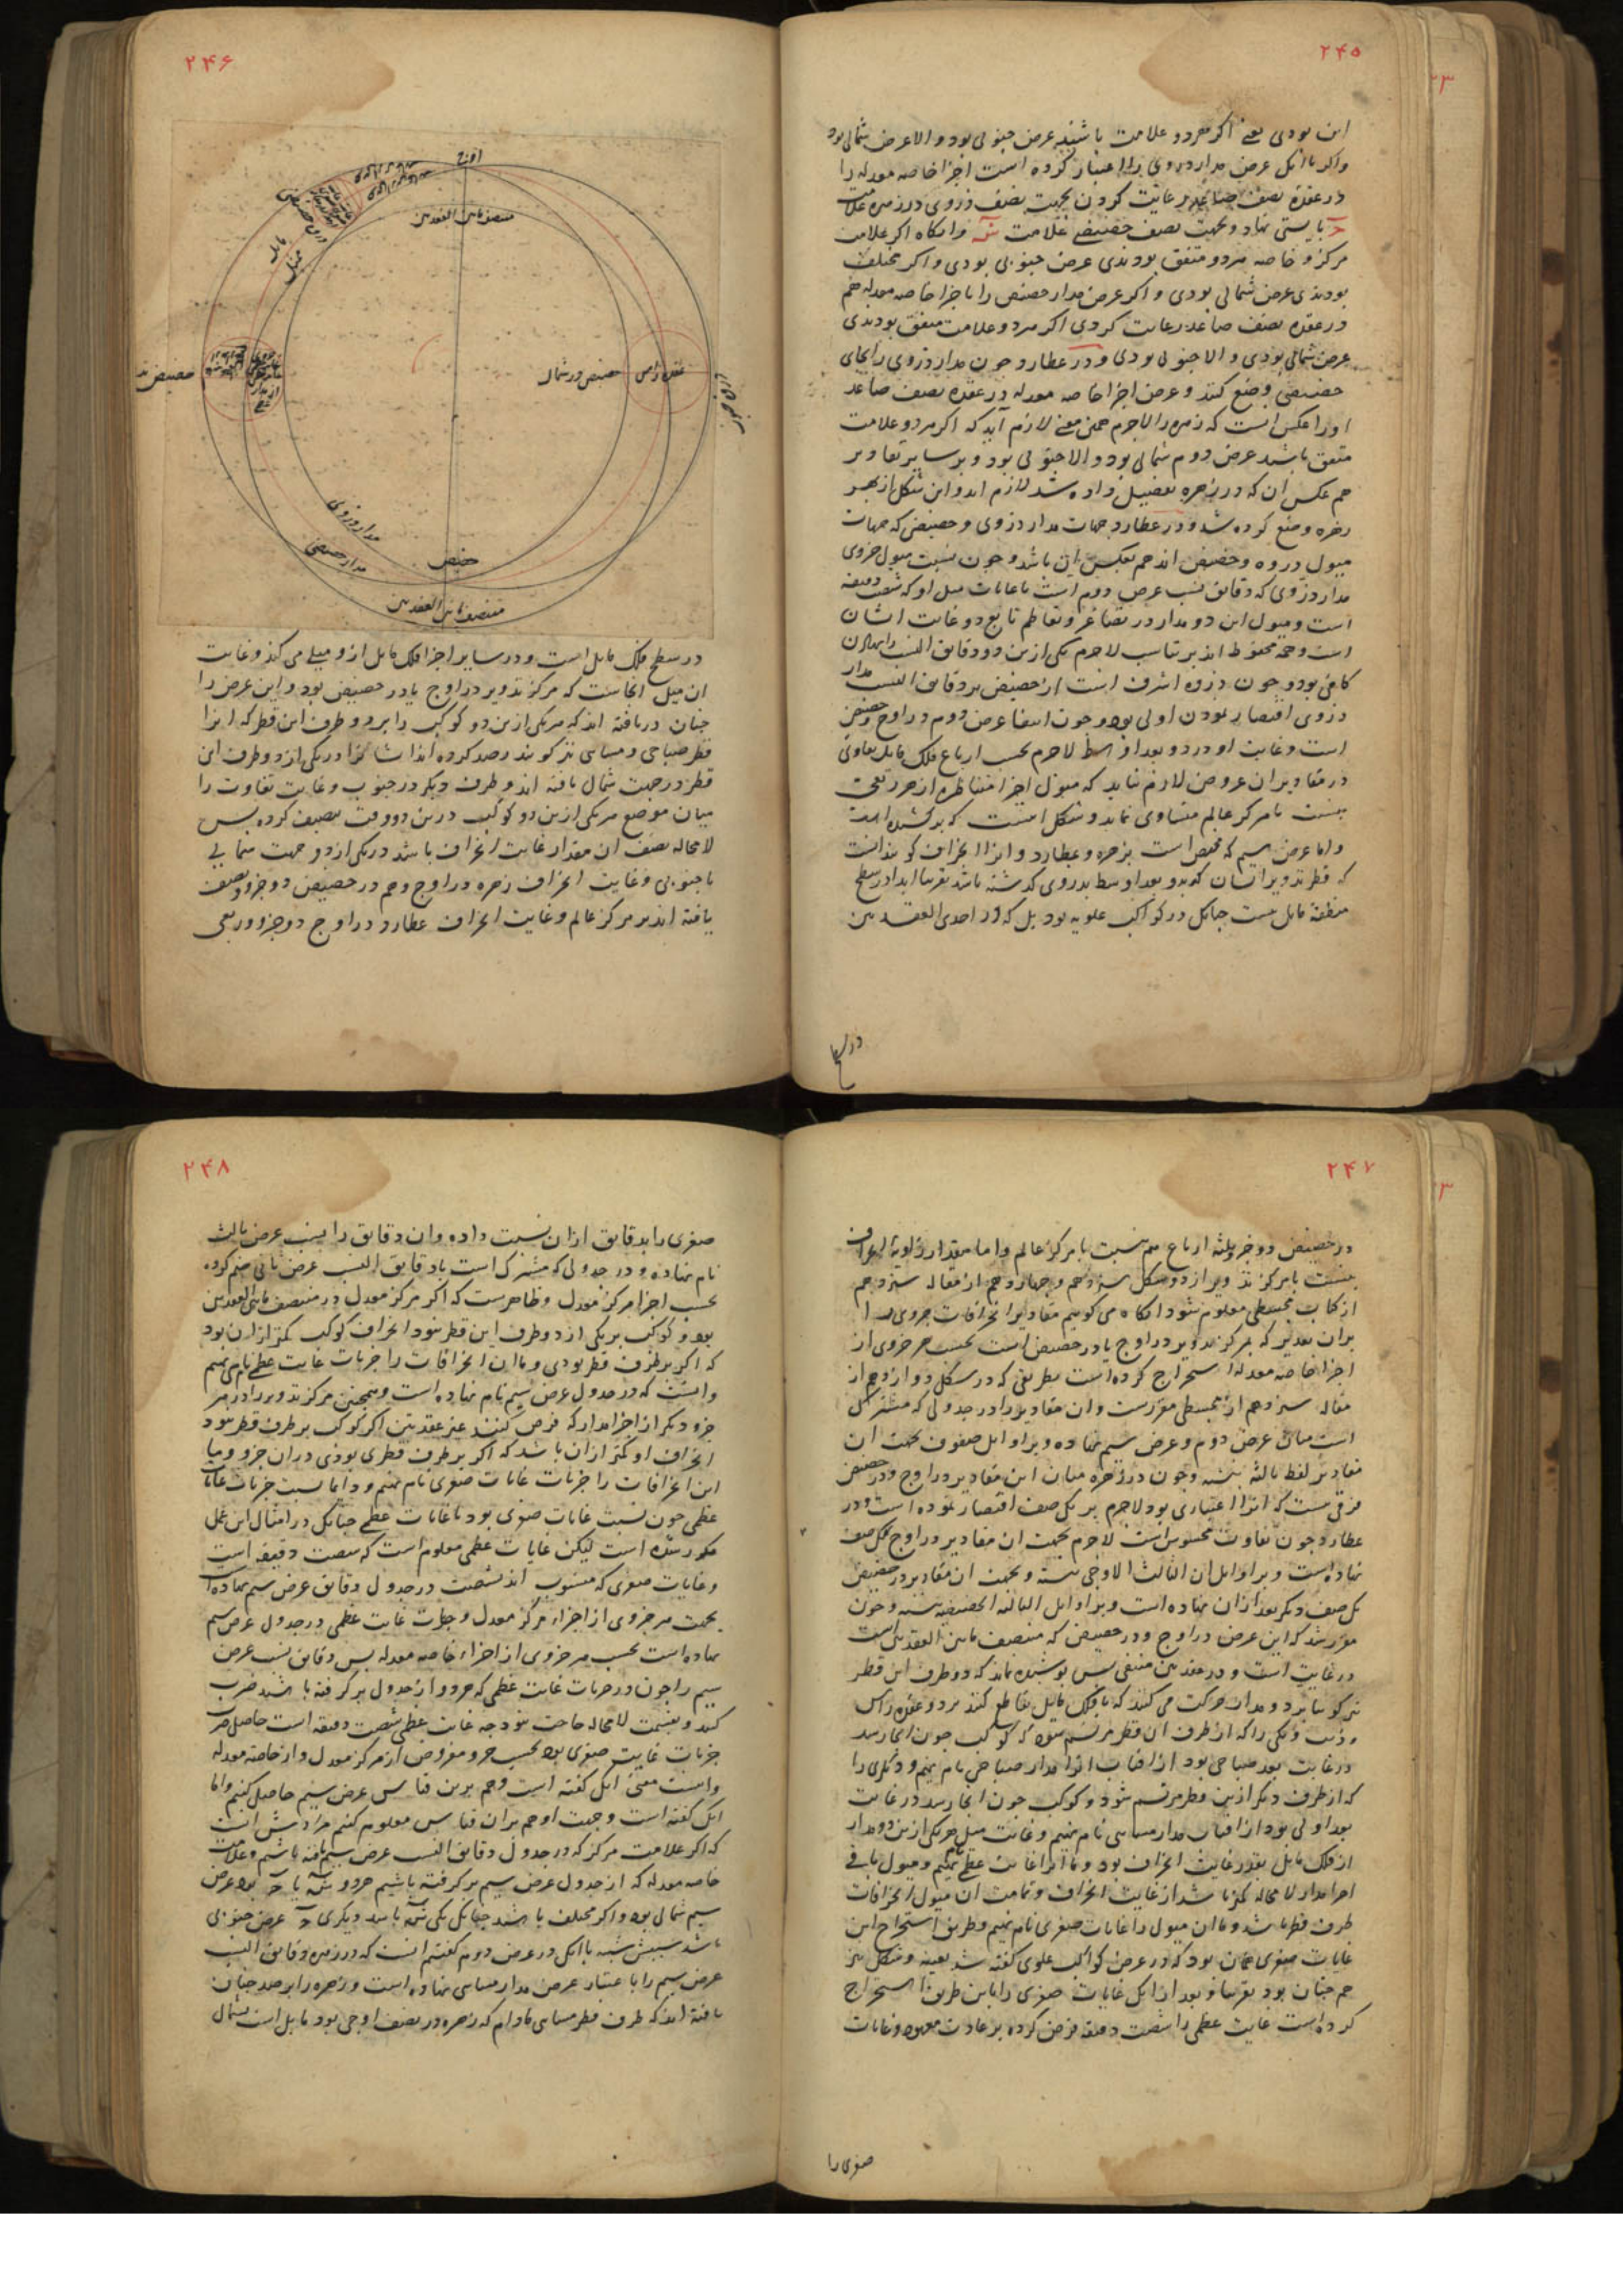 ۲۴۵
این بودی یعنی اگر هر دو علامت باشند عرض جنوبی بود و الا عرض شمالی بود
واگر با انکل عرض مدار ذروی را اعتبار کرده است اجزا خاصه معدله را
در عقده نصف صاعد رعایت کردن بجهت نصف ذروی در زهره علامت
بایستی نهاد و بجهت نصف حضیضی علامت و انکاه اکر علامت
مرکز و خاصه هردو متفق بودندی عرض جنوبی بودی و اکر مختلف
بودندی عرض شمالی بودی و اکر عرض مدار حضیض را با جزا خاصه معدله هم
در عقده نصف صاعد رعایت کردی اکر هردو علامت متفق بودندی
عرض شمالی بودی و الا جنوبی بودی و در عطارد چون مدار ذروی را بجای
حضیضی وضع کنند و عرض اجزا خاصه معدله در عقده نصف صاعد
اورا عکس انست که زهره را لاجرم همین معنی لازم آید که اکر هردو علامت
متفق باشد عرض دوم شمالی بود و الا جنوبی بود و بر سایر تقادیر
هم عکس ان که در زهره تفصیل داده شد لازم اید و این شکل از بهر
زهره وضع کرده شد و در عطارد جهات مدار ذروی و حضیضی که جهات
میول ذروه و حضیض اند هم بعکس این باشد و چون نسبت میول جزوی
مدار ذروی که دقایق نسب عرض دوم است با غایات میل او که شصت دقیقه
است و میول این دو مدار در تصاغر و تعاظم تابع دو غایت ایشان
است و همه محفوظ اند بر تناسب لاجرم یکی ازین دو دقایق النسب
کافی بود و چون ذروه اشرف است از حضیض بر دقایق النسب مدار
ذروی اقتصار نمودن اولی بود و چون انتفا عرض دوم در اوج و حضیض
است و غایت او در دو بعد اوسط لاجرم بحسب ارباع فلک مایل تفاوتی
در مقادیر ان عروض لازم نیاید که میول اجزا متناظره از هر ربعی
بنسبت با مرکز عالم متساوی نماید و شکل اینست که بر کشیده امد
واما عرض سیم که مختص است بزهره و عطارد و انرا انحراف کویند انست
که قطر تدویر ایشان که بدو بعد اوسط بدروی کذشته باشد تقریبا ابدا در سطح
منطقه مایل نیست چنانک در کواکب علویه بود بل که در احدی العقدتین
در سطح
۲۴۶
اوج
منتصف مابین العقدتین
مایل
ممثل
حضیض در شمال
عقده راس
مدار ذروی
مدار حضیضی
حضیض
منتصف مابین العقدتین
در سطح فلک مایل است و در سایر اجزا فلک مایل ازو میلی می کند و غایت
ان میل انجاست که مرکز تدویر در اوج یا در حضیض بود و این عرض را
چنان دریافته اند که هریکی ازین دو کوکب را بر دو طرف این قطر که انرا
قطر صباحی و مسایی نیز کویند رصد کرده اند ایشانرا در یکی از دو طرف این
قطر در جهت شمال یافته اند و طرف دیکر در جنوب و غایت تفاوت را
میان موضع هریکی ازین دو کوکب درین دو وقت تنصیف کرده پس
لامحاله نصف ان مقدار غایت انحراف باشد در یکی از دو جهت شمالی
یا جنوبی و غایت انحراف زهره در اوج و هم در حضیض دو جزو و نصف
یافته اند بر مرکز عالم و غایت انحراف عطارد در اوج دو جزو و ربعی
۲۴۷
در حضیض دو جزو و ثلثه ارباع هم بنسبت با مرکز عالم واما مقدار زاویه انحراف
بنسبت با مرکز تدویر از دو شکل سیزدهم و چهاردهم از مقاله سیزدهم
از کتاب مجسطی معلوم شود انکاه می کوییم مقادیر انحرافات جزوی را
بران تقدیر که مرکز تدویر در اوج یا در حضیض است بحسب هر جزوی از
اجزا خاصه معدله استخراج کرده است بطریقی که در شکل دوازدهم از
مقاله سیزدهم از مجسطی مقررست وان مقادیر را در جدولی که مشترک
است میان عرض دوم و عرض سیم نهاده و بر اوایل صفوف بجهت ان
مقادیر لفظ ثالثه نبشته و چون در زهره میان این مقادیر در اوج و در حضیض
فرقی نیست که انرا اعتباری بود لاجرم بر یکل صف اقتصار نموده است و در
عطارد چون تفاوت محسوس است لاجرم بجهت ان مقادیر در اوج یکل صف
نهاده است و بر اوایل ان الثالث الاوجی نبشته و بجهت ان مقادیر در حضیض
یکل صف دیکر بعد ازان نهاده است و بر اوایل الثالثه الحضیضیه نبشته و چون
مقرر شد که این عرض در اوج و در حضیض که منتصف مابین العقدتین است
در غایت است و در عقدتین منتفی پس پوشیده نماند که دو طرف این قطر
نیز کویا بر دو مدار حرکت می کنند که با فلک مایل تقاطع کنند بر دو عقده راس
و ذنب و یکی را که از طرف ان قطر مرتسم شود که کوکب چون انجا رسد
در غایت بعد صباحی بود از افتاب انرا مدار صباحی نام نهیم و دیکری را
که از طرف دیکر ازین قطر مرتسم شود و کوکب چون انجا رسد در غایت
بعد اولی بود از افتاب مدار مسایی نام نهیم و غایت میل هریکی ازین دو مدار
از فلک مایل بقدر غایت انحراف بود و ما انرا غایت عظمی نهیم و میول باقی
اجزا مدار لا محاله کمتر باشد از غایت انحراف و تمامت ان میول انحرافات
طرف قطر باشد و ما ان میول را غایات صغری نام نهیم و طریق استخراج این
غایات صغری همان بود که در عرض کواکب علوی کفته شد بعینه و شکل نیز
هم چنان بود تقریبا و بعد از انک غایات صغری را باین طریق استخراج
کرده است غایت عظمی را شصت دقیقه فرض کرده بر عادت معهود و غایات
صغری را
۲۴۸
صغری را بدقایق ازان نسبت داده وان دقایق را نسب عرض ثالث
نام نهاده و در جدولی که مشترک است با دقایق النسب عرض ثانی ضم کرده
بحسب اجزا مرکز معدل و ظاهرست که اکر مرکز معدل در منتصف مابین العقدتین
بود و کوکب بر یکی از دو طرف این قطر نبود انحراف کوکب کمتر ازان بود
که اکر بر طرف قطر بودی و ما ان انحرافات را جزیات غایت عظمی نام نهیم
وانست که در جدول عرض سیم نام نهاده است و همچنین مرکز تدویر را در هر
جزو دیکر از اجزا مدار که فرض کنند غیر عقدتین اکر کوکب بر طرف قطر نبود
انحراف او کمتر ازان باشد که اکر بر طرف قطری بودی دران جزو و ما
این انحرافات را جزیات غایات صغری نام نهیم و دایما نسبت جزیات غایات
عظمی چون نسبت غایات صغری بود با غایات عظمی چنانکل در امثال این عمل
مکرر شده است لیکن غایات عظمی معلوم است که شصت دقیقه است
و غایات صغری که منسوب اند بشصت در جدول دقایق عرض سیم نهاده است
بجهت هر جزوی از اجزاء مرکز معدل و جزیات غایت عظمی در جدول عرض سیم
نهاده است بحسب هر جزوی از اجزاء خاصه معدله پس دقایق نسب عرض
سیم را چون در جزیات غایت عظمی که هر دو از جدول بر کرفته باشند ضرب
کنند و بقسمت لا محاله حاجت نبود چه غایت عظمی شصت دقیقه است حاصل ضرب
جزیات غایت صغری بود بحسب جزو مفروض از مرکز معدل و از خاصه معدله
وانست معنی انک کفته است و هم برین قیاس عرض سیم حاصل کنیم واما
انک کفته است و جهت او هم بران قیاس معلوم کنیم مرادش انست
که اکر علامت مرکز که در جدول دقایق النسب عرض سیم یافته باشیم و علامت
خاصه معدله که از جدول عرض سیم بر کرفته باشیم هردو یا بود عرض
سیم شمالی بود و اکر مختلف باشند چنانکل یکی باشد و دیکری عرض جنوبی
باشد سببش شبه با انکل در عرض دوم کفتیم انست که در زهره دقایق النسب
عرض سیم را با عتبار عرض مدار مسایی نهاده است و زهره را برصد چنان
یافته اند که طرف قطر مسایی مادام که زهره در نصف اوجی بود مایل است بشمال